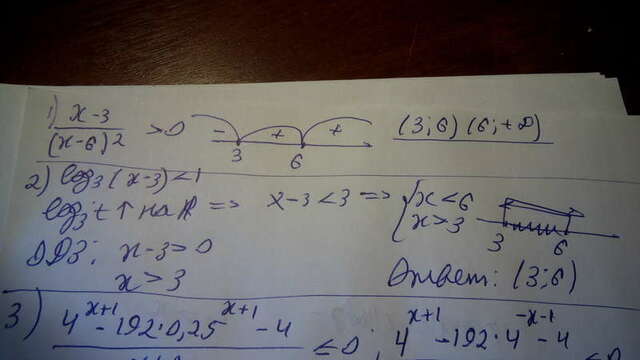 1) x-3 / (x-6)² > 0   - + +   3 6   (3;6)(6;+∞)
2) log₃(x-3)<1
log₃t ↑ на R => x-3<3 => { x<6
x>3   3 6
ОДЗ: x-3>0
x>3   Ответ: (3;6)
3) 4^(x+1) - 192·0,25^(x+1) - 4   ≤0; 4^(x+1) - 192·4^(-x-1) - 4